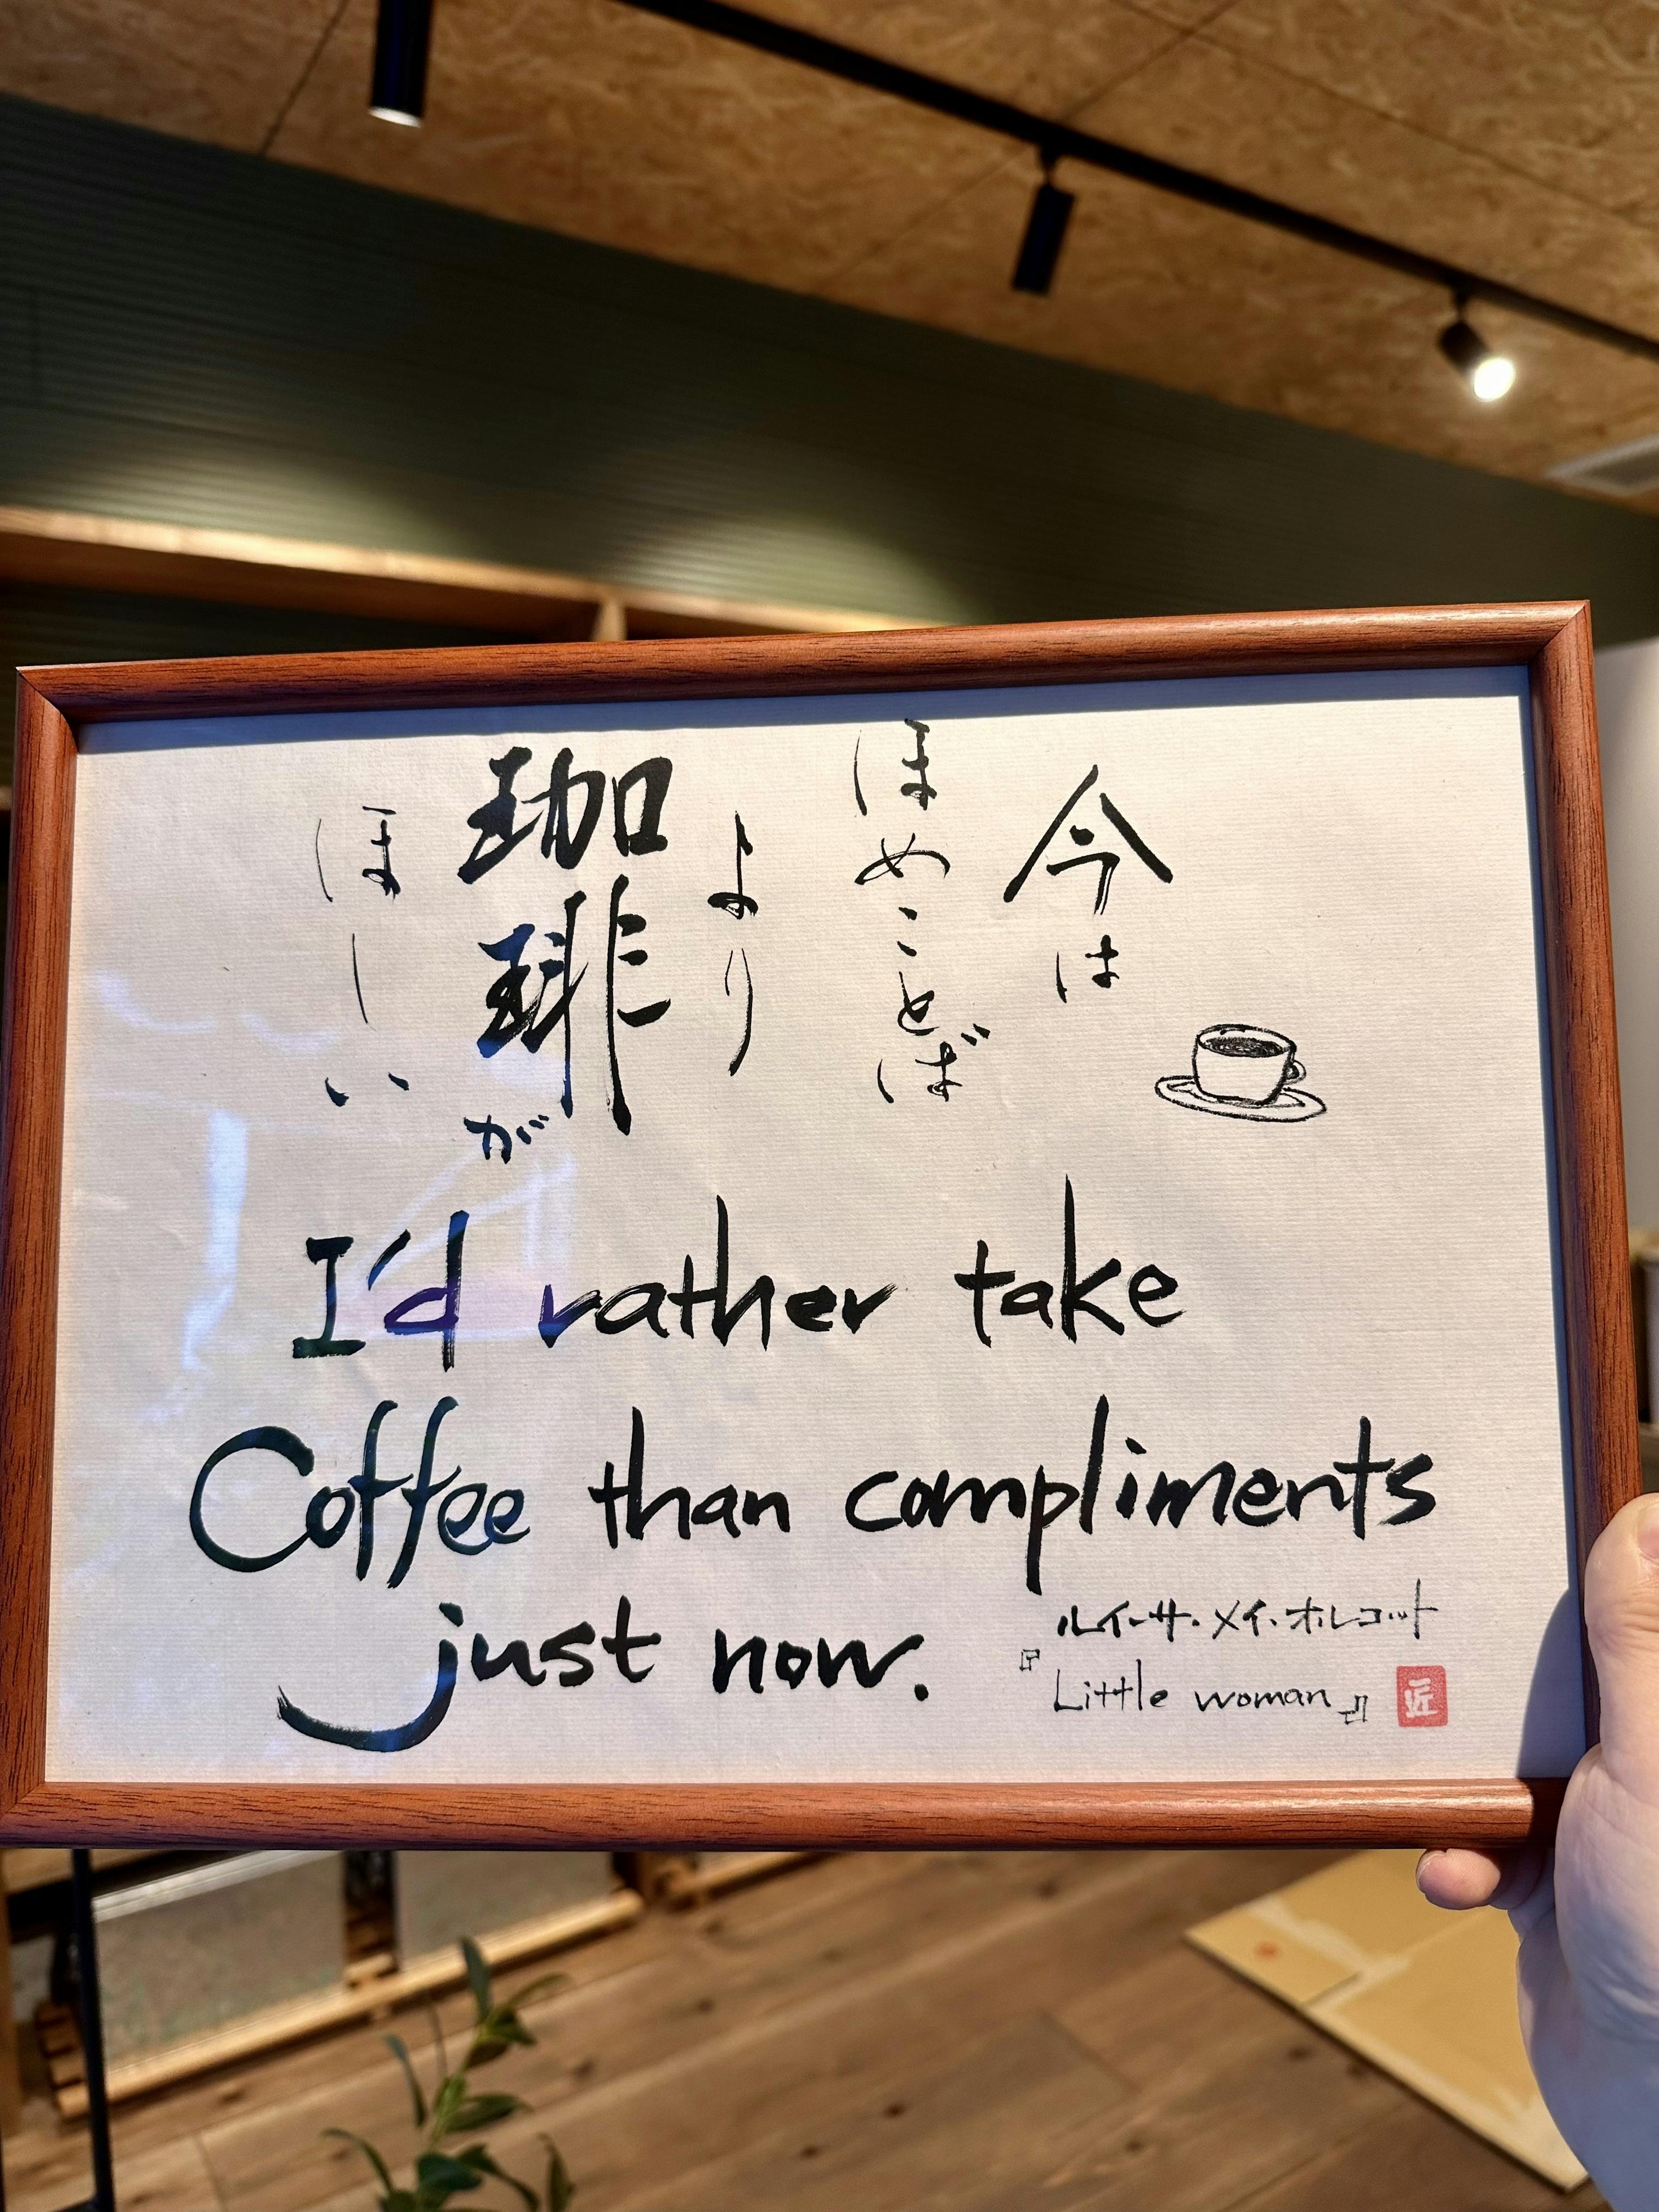 今は
ほめことば
より
珈琲が
ほしい
I'd rather take
Coffee than compliments
just now.
ルイーサ・メイ・オルコット
『Little woman』
匠